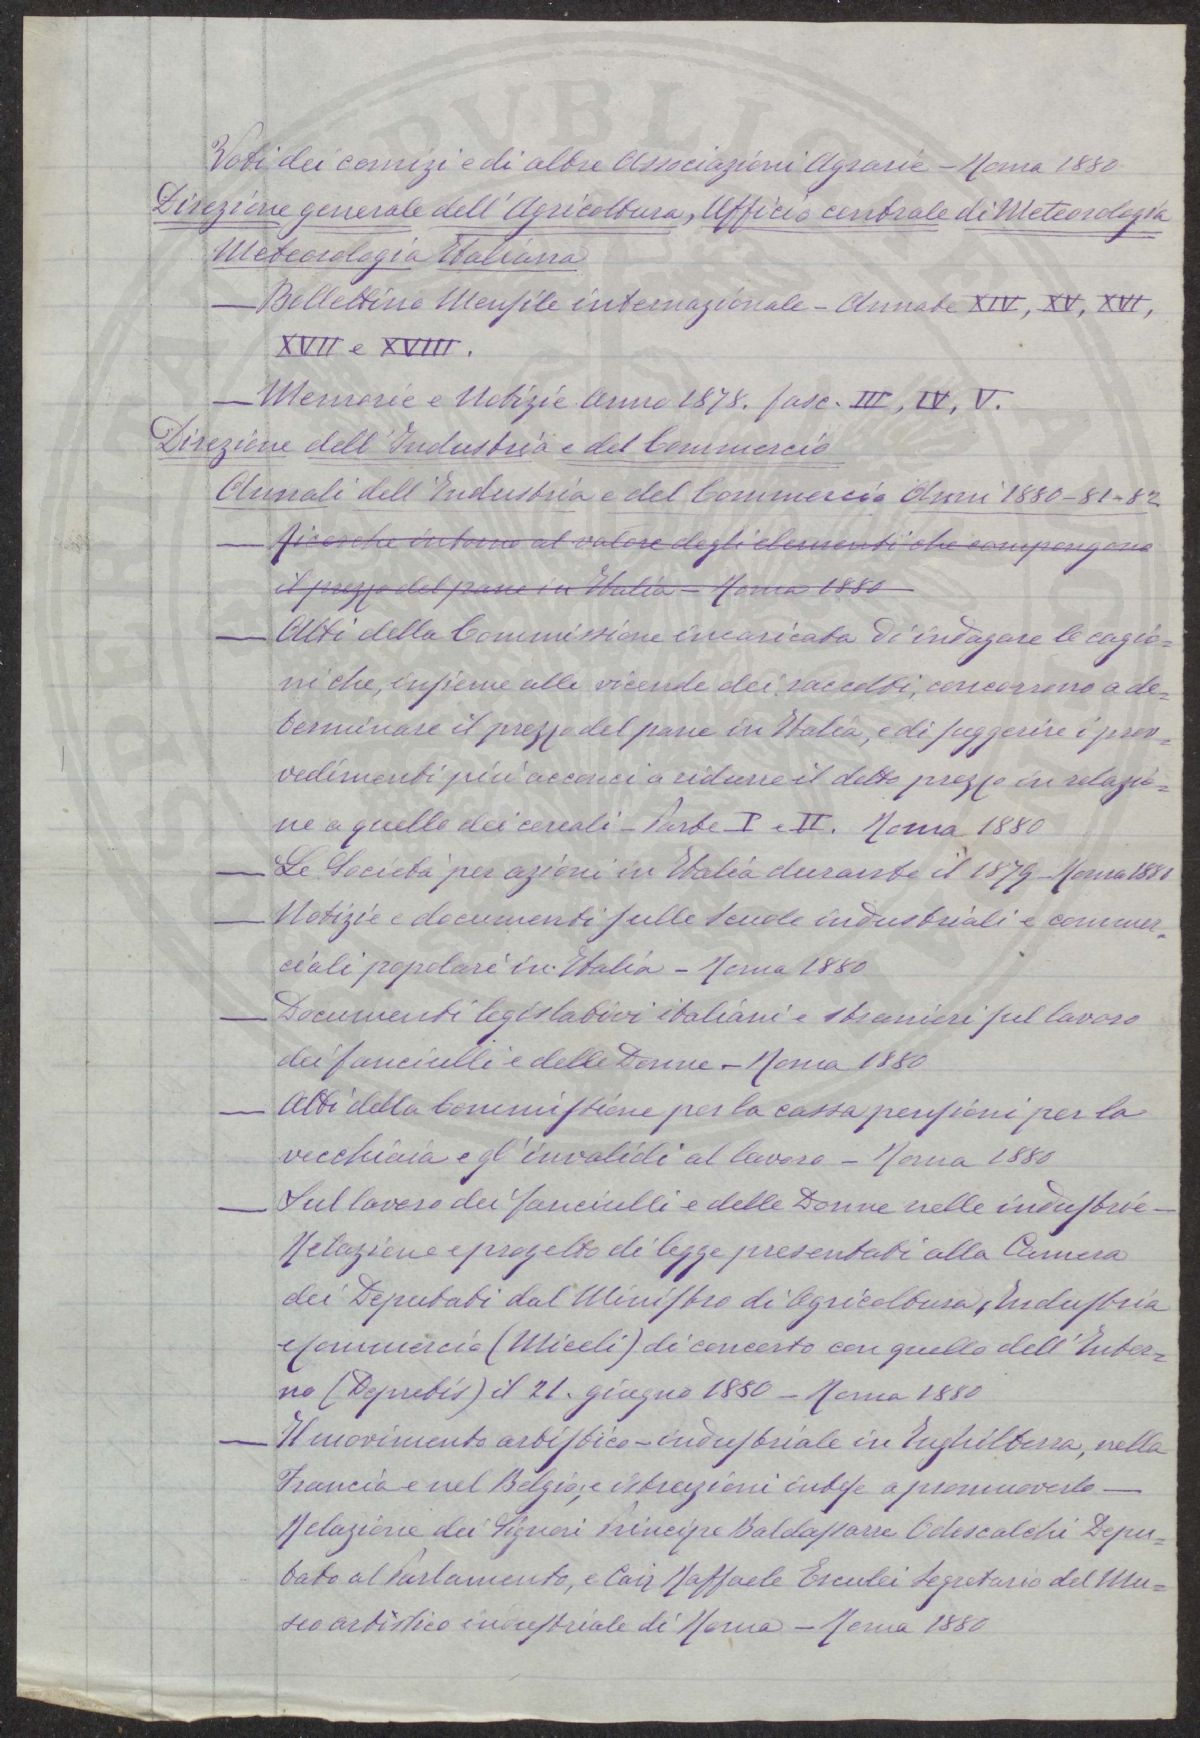 Voti dei comizi e di altre Associazioni Agrarie – Roma 1880
Direzione generale dell'Agricoltura, Ufficio centrale di Meteorologia
Meteorologia Italiana
— Bollettino Mensile internazionale – Annate XIV, XV, XVI,
XVII e XVIII.
— Memorie e Notizie Anno 1878. fasc. III, IV, V.
Direzione dell'Industria e del Commercio
Annali dell'Industria e del Commercio Anni 1880–81–82
— Ricerche intorno al valore degli elementi che compongono
il prezzo del pane in Italia – Roma 1880
— Atti della Commissione incaricata di indagare le cagio=
ni che, insieme alle vicende dei raccolti, concorrono a de=
terminare il prezzo del pane in Italia, e di suggerire i prov=
vedimenti più acconci a ridurre il detto prezzo in relazio=
ne a quello dei cereali – Parte I e II. Roma 1880
— Le Società per azioni in Italia durante il 1879 – Roma 1880
— Notizie e documenti sulle scuole industriali e commer=
ciali popolari in Italia – Roma 1880
— Documenti legislativi italiani e stranieri sul lavoro
dei fanciulli e delle Donne – Roma 1880
— Atti della Commissione per la cassa pensioni per la
vecchiaia e gl'invalidi al lavoro – Roma 1880
— Sul lavoro dei fanciulli e delle Donne nelle industrie –
Relazione e progetto di legge presentati alla Camera
dei Deputati dal Ministro di Agricoltura, Industria
e Commercio (Miceli) di concerto con quello dell'Inter=
no (Depretis) il 21. giugno 1880 – Roma 1880
— Il movimento artistico–industriale in Inghilterra, nella
Francia e nel Belgio; e istruzioni intese a promuoverlo —
Relazione dei Signori Principe Baldassarre Odescalchi Depu=
tato al Parlamento, e Cav. Raffaele Erculei Segretario del Mu=
seo artistico industriale di Roma – Roma 1880